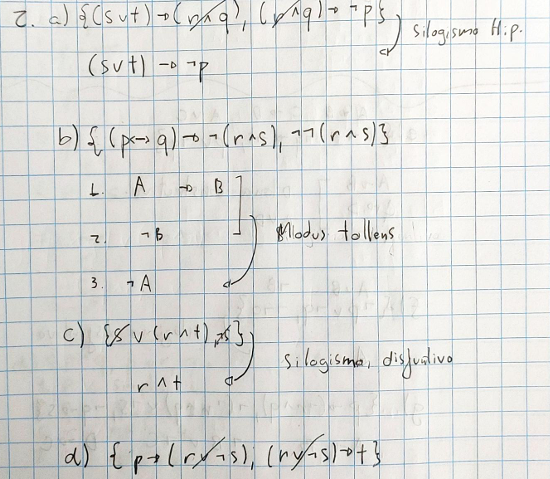 2. a) {(s∨t)→(r∧q), (r∧q)→¬p} silogismo Hip.
(s∨t)→¬p
b) {(p↔q)→¬(r∧s), ¬¬(r∧s)}
1. A → B
2. ¬B Modus tollens
3. ¬A
c) {s∨(r∧t), ¬s}
silogismo, disjuntivo
r∧t
d) {p→(r∨¬s), (r∨¬s)→t}